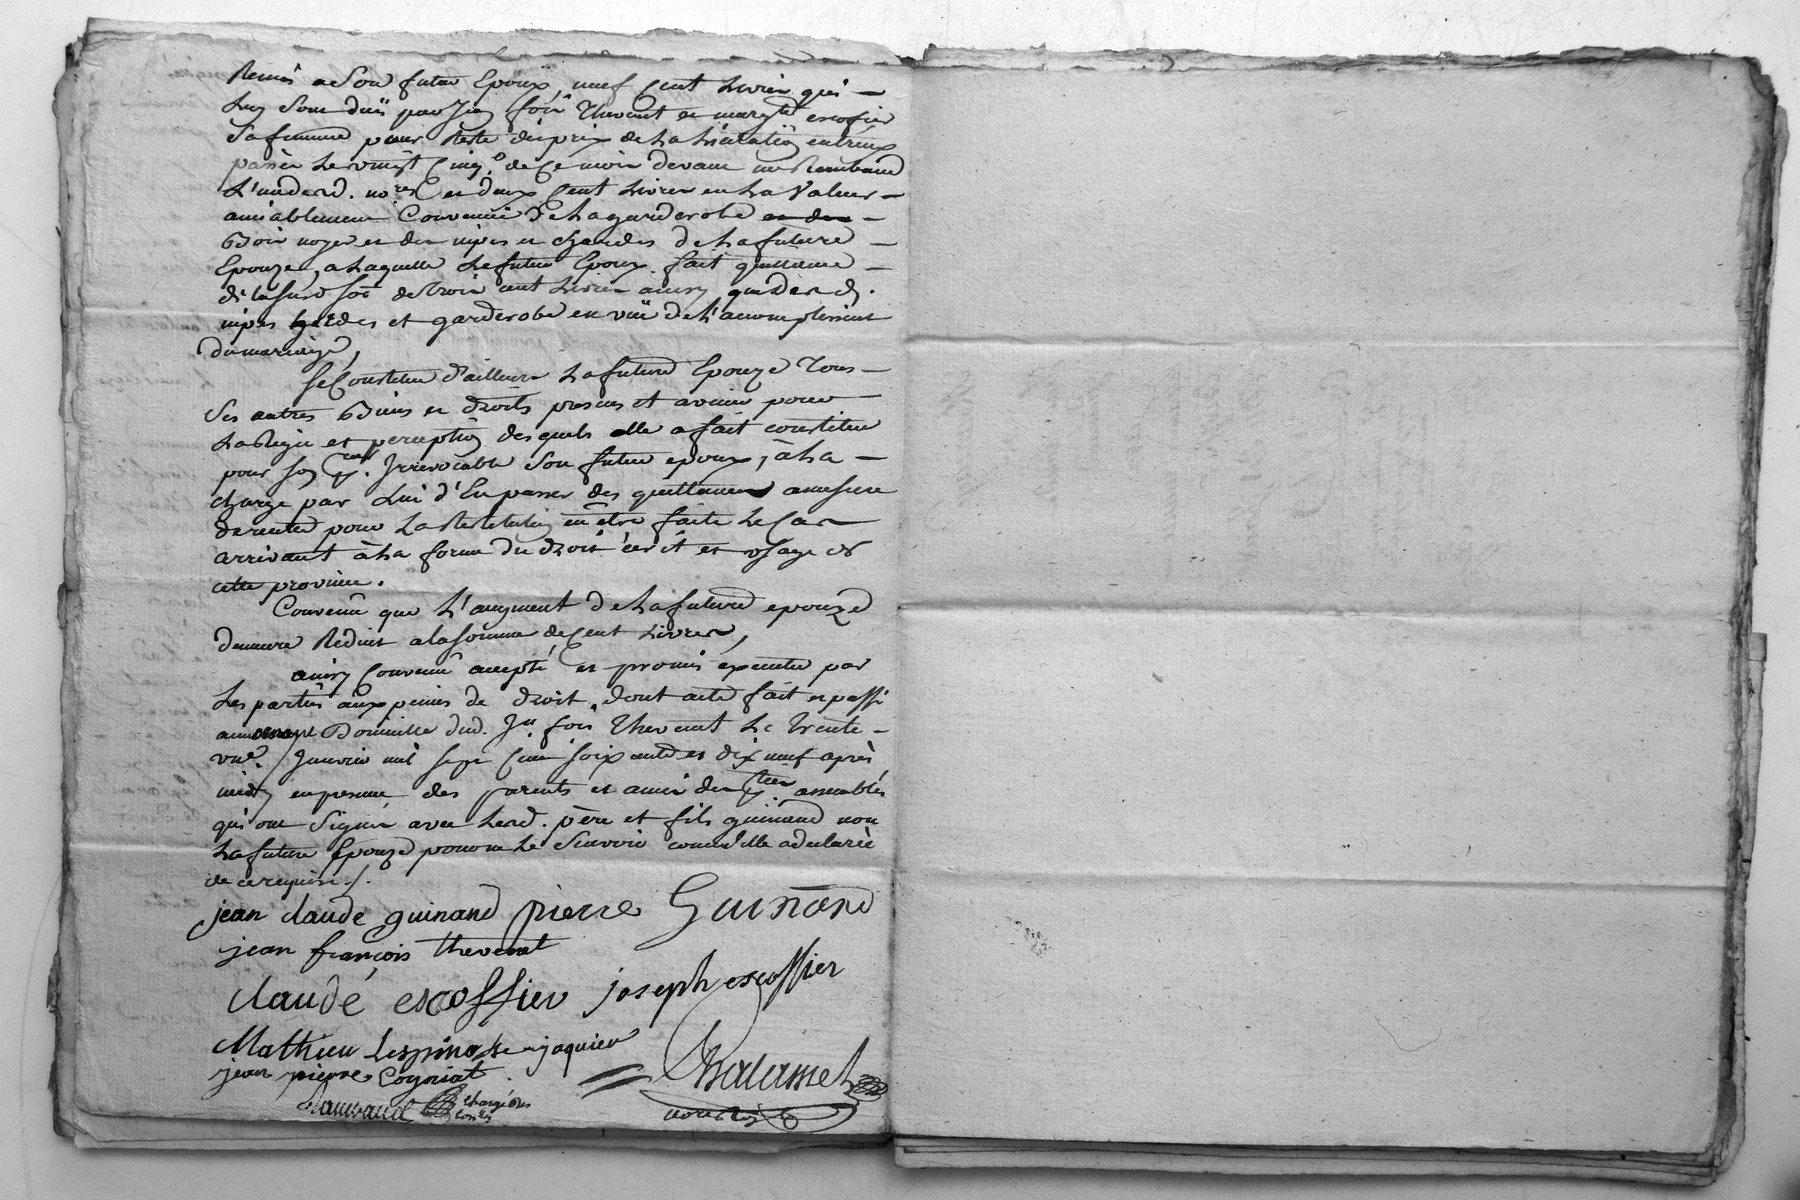 Remis a son futur Epoux, neuf Cent Livres qui
Luy sont dûs par Jean fois Thevenet et margte escofier
Sa femme pour reste du prix de La Licitation entreux
passée Le vingt Cinq de Ce mois devant me Rambaud
L'un desd. nores et deux Cent Livres en La Valeur
amiablement Convenue de La garderobe
Bois noyer et des nipes et hardes de La future
Epouze, a Laquelle Le futur Epoux fait quittance
de trois cent Livres ainsy que des d.
nipes hardes et garderobe en vüe de L'accomplissement
du mariage,
Se Constitue d'ailleurs La future Epouze Tous
Ses autres Biens et droits presens et avenir pour
La Regie et perception desquels elle a fait constitue
pour son Irrevocable Son futur epoux, à La
charge par Lui d'En passer des quittances amesure
de recette pour La Restitution en être faite Le Cas
arrivant à La forme du droit écrit et usage de
cette province.
Convenu que L'augment de La future epouze
demeure Reduit a la somme de Cent Livres,
ainsy Convenu accepté et promis executer par
Les parties aux peines de droit, dont acte fait et passé
Domicile dud. Jn fois Thevenet Le Trente
une Janvier mil sept Cent soixante et dix neuf après
midy en presence des parents et amis des assemblés
qui ont Signé avec Lesd. père et fils guinand non
La future Epouze pour ne Le Scavoir comme elle a declaré
de ce requise /.
jean claude guinand pierre Guinand
jean françois thevenet
claude escoffier joseph escoffier
Mathieu Lespinasse jaquier
jean pierre Cogniat
Rambaud
Chalamel
nore